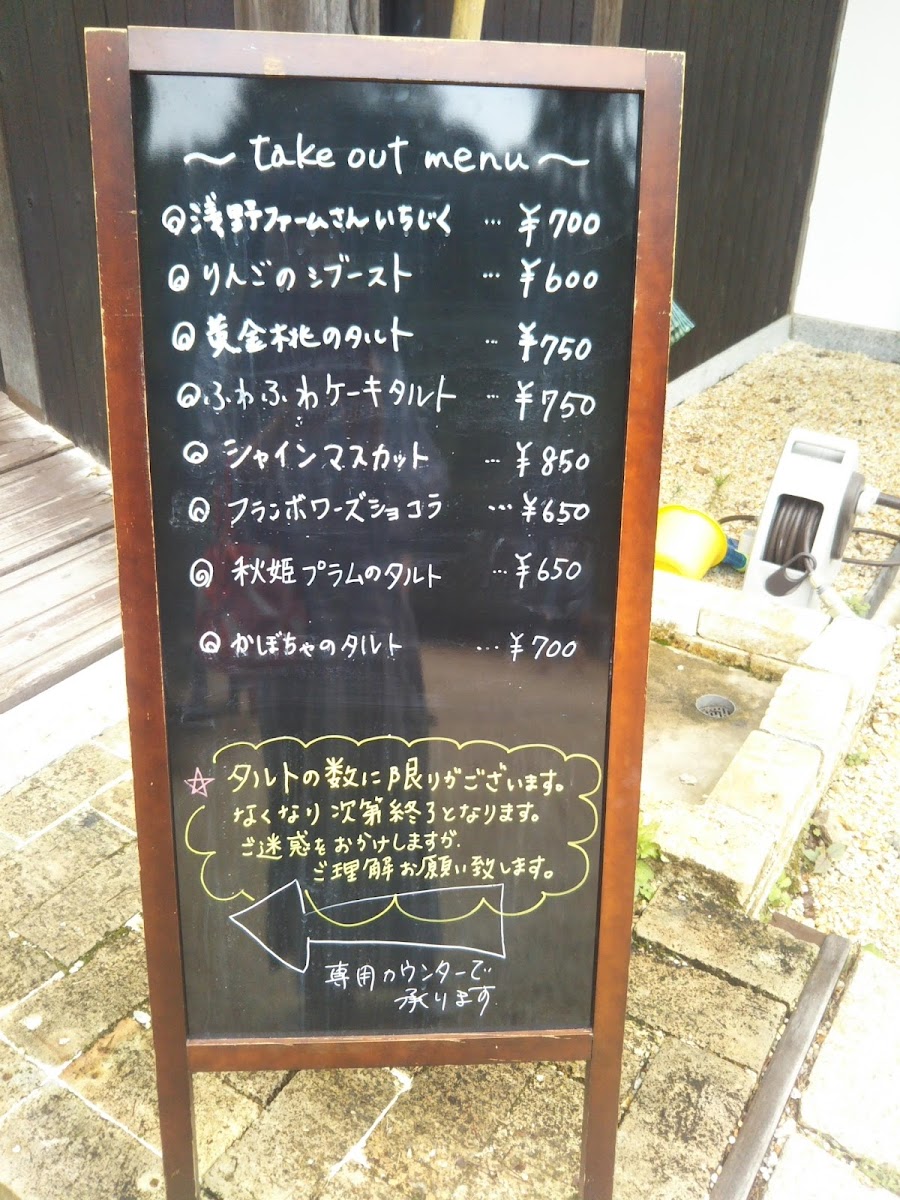 ～ take out menu ～
◎浅野ファームさんいちじく … ¥700
◎りんごのシブースト … ¥600
◎黄金桃のタルト … ¥750
◎ふわふわケーキタルト … ¥750
◎シャインマスカット … ¥850
◎フランボワーズショコラ … ¥650
◎秋姫プラムのタルト … ¥650
◎かぼちゃのタルト … ¥700
☆タルトの数に限りがございます。
なくなり次第終了となります。
ご迷惑をおかけしますが
ご理解お願い致します。
専用カウンターで
承ります